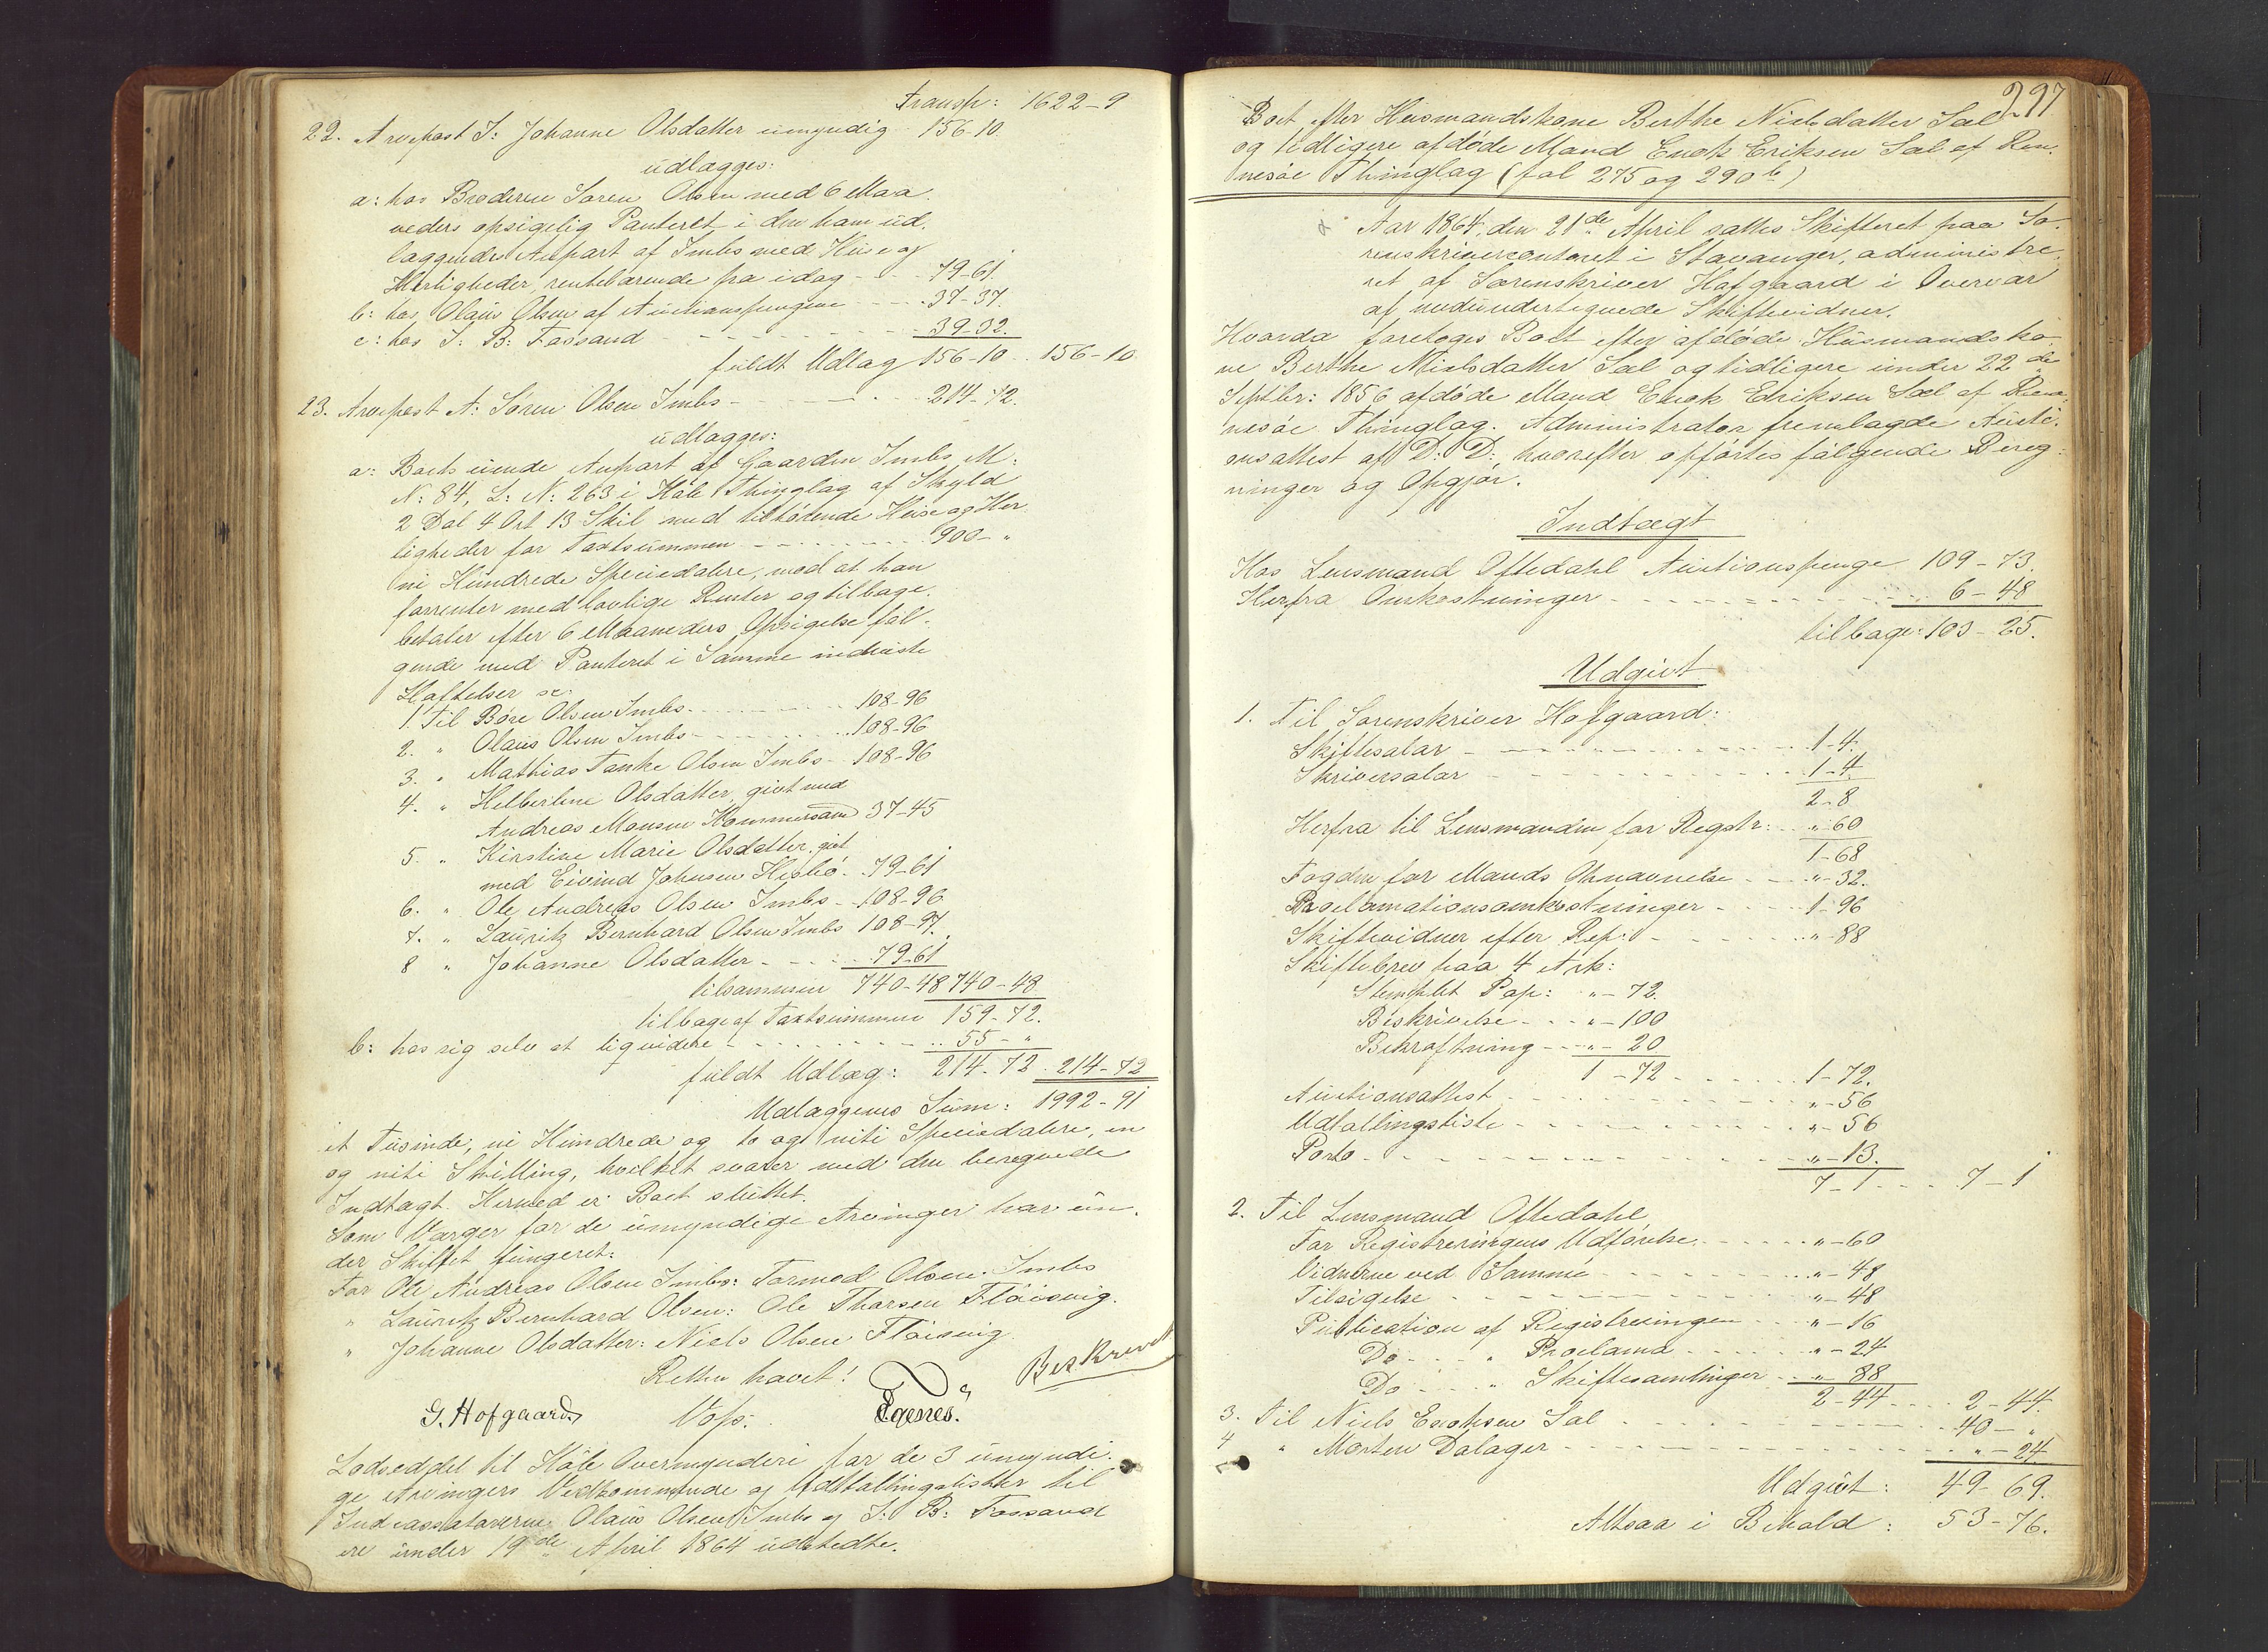 Transp: 1622-9
22. Arvepost I: Johanne Olsdatter umyndig 156-10.
udlægges:
a: hos Broderen Søren Olsen med 6 Maa
neders opsigelig Panteret i den ham ud-
læggendes Anpart af Imbs med Huse og
Herligheder, rentebærende fra idag - - 79-61
b: hos Olaus Olsen af Auctionspengene - - - 37-37.
c: hos I: B: Fossand - - - - - - 39-32.
fuldt Udlæg 156-10 . 156-10
23. Arvepost A: Søren Olsen Imbs - - - - 214-72.
udlægges:
a: Boets eiende Anpart af Gaarden Imbs M:
N: 84, L: N: 263 i Høle Thinglag af Skyld
2 Dal 4 Ort 13 Skil med tilhørende Huse og Her
ligheder for Taxtsummen - - - - - 900- "
ni Hundrede Speciedalere, mod at han
forrenter med lovlige Renter og tilbage-
betaler efter 6 Maaneders Opsigelse føl-
gende med Panteret i Samme indeiste
Hæftelser sc:
1. Til Børe Olsen Imbs - - - - - 108-96
2. " Olaus Olsen Imbs - - - - 108-96
3. " Mathias Tanke Olsen Imbs - 108-96
4. " Helberline Olsdatter, givt med
Andreas Monsen Hommersand 37-45
5. " Kirstine Marie Olsdatter, givt
med Eivind Johnsen Hesbø - 79-61
6. " Ole Andreas Olsen Imbs - 108-96
7. " Lauritz Bernhard Olsen Imbs 108-97.
8 " Johanne Olsdatter - - - 79-61
tilsammen 740-48 740-48
tilbage af Taxtsummen 159-72.
b: hos sig selv at liqvidere - - - - - 55- "
fuldt Udlæg: 214-72 . 214-72
Udlæggenes Sum: 1992-91
et Tusinde, ni Hundrede og to og niti Speciedalere, en
og niti Skilling, hvilket svarer med den beregnede
Indtægt. Hermed er Boet sluttet.
Som Værger for de umyndige Arvinger har un-
der Skiftet fungeret:
For Ole Andreas Olsen Imbs: Tormod Olsen Imbs
" Lauritz Bernhard Olsen: Ole Thorsen Fløisvig.
" Johanne Olsdatter: Niels Olsen Fløisvig.
Retten hævet!
Beskrevet
G. Hofgaard Vops: Egenes.
Lodseddel til Høle Overmynderi for de 3 umyndi-
ge Arvingers Vedkommende og Udtællingslister til
Indcassatorerne Olaus Olsen Imbs og I: B: Fossand
ere under 19de April 1864 udstedte.
297
Boet efter Husmandskone Berthe Nielsdatter Sæl
og tidligere afdøde Mand Enok Eriksen Sæl af Ren-
nesøe Thinglag (fol 275 og 290b)
Aar 1864, den 21de April sattes Skifteret paa So-
renskrivercontoret i Stavanger, administre-
ret af Sorenskriver Hofgaard i Overvær
af nedenundertegnede Skiftevidner.
Hvorda foretoges Boet efter afdøde Husmandsko-
ne Berthe Nielsdatter Sæl og tidligere under 22de
Septbr: 1856 afdøde Mand Enok Eriksen Sæl af Ren-
nesøe Thinglag. Administrator fremlagde Aucti-
onsattest af D: D:, hvorefter opførtes følgende Bereg-
ninger og Opgjør.
Indtægt
Hos Lensmand Oftedahl Auctionspenge 109-73.
Herfra Omkostninger - - - - - 6-48
tilbage: 103-25.
Udgivt
1. Til Sorenskriver Hofgaard:
Skiftesalær - - - - - 1-4.
Skriversalær - - - - - 1-4.
2-8
Herfra til Lensmanden for Registr: - "-60
1-68
Fogden for Mands Opnævnelse - - "-32.
Proclamationsomkostninger - - - 1-96
Skiftevidner efter Rep: - - - - "-88
Skiftebrev paa 4 Ark:
Stemplet Pap: "-72.
Beskrivelse - - "-100
Bekræftning - - "-20
1-72 - - - - 1-72.
Auctionsattest - - - - - "-56
Udtællingsliste - - - - - "-56
Porto - - - - - "-13.
7-1 - - - 7-1
2. Til Lensmand Oftedahl
For Registreringens Udførelse - - - "-60
Vidnerne ved Samme - - - - "-48
Tilsigelse - - - - - "-48
Publication af Registreringen - - "-16
Do - - " Proclama - - - - "-24
Do - - " Skiftesamlinger - - " 88
2-44 - - - 2-44.
3. Til Niels Enoksen Sæl - - - - - 40- "
4 " Morten Dalager - - - - - "-24
Udgivt: 49-69.
Altsaa i Behold: 53-76.